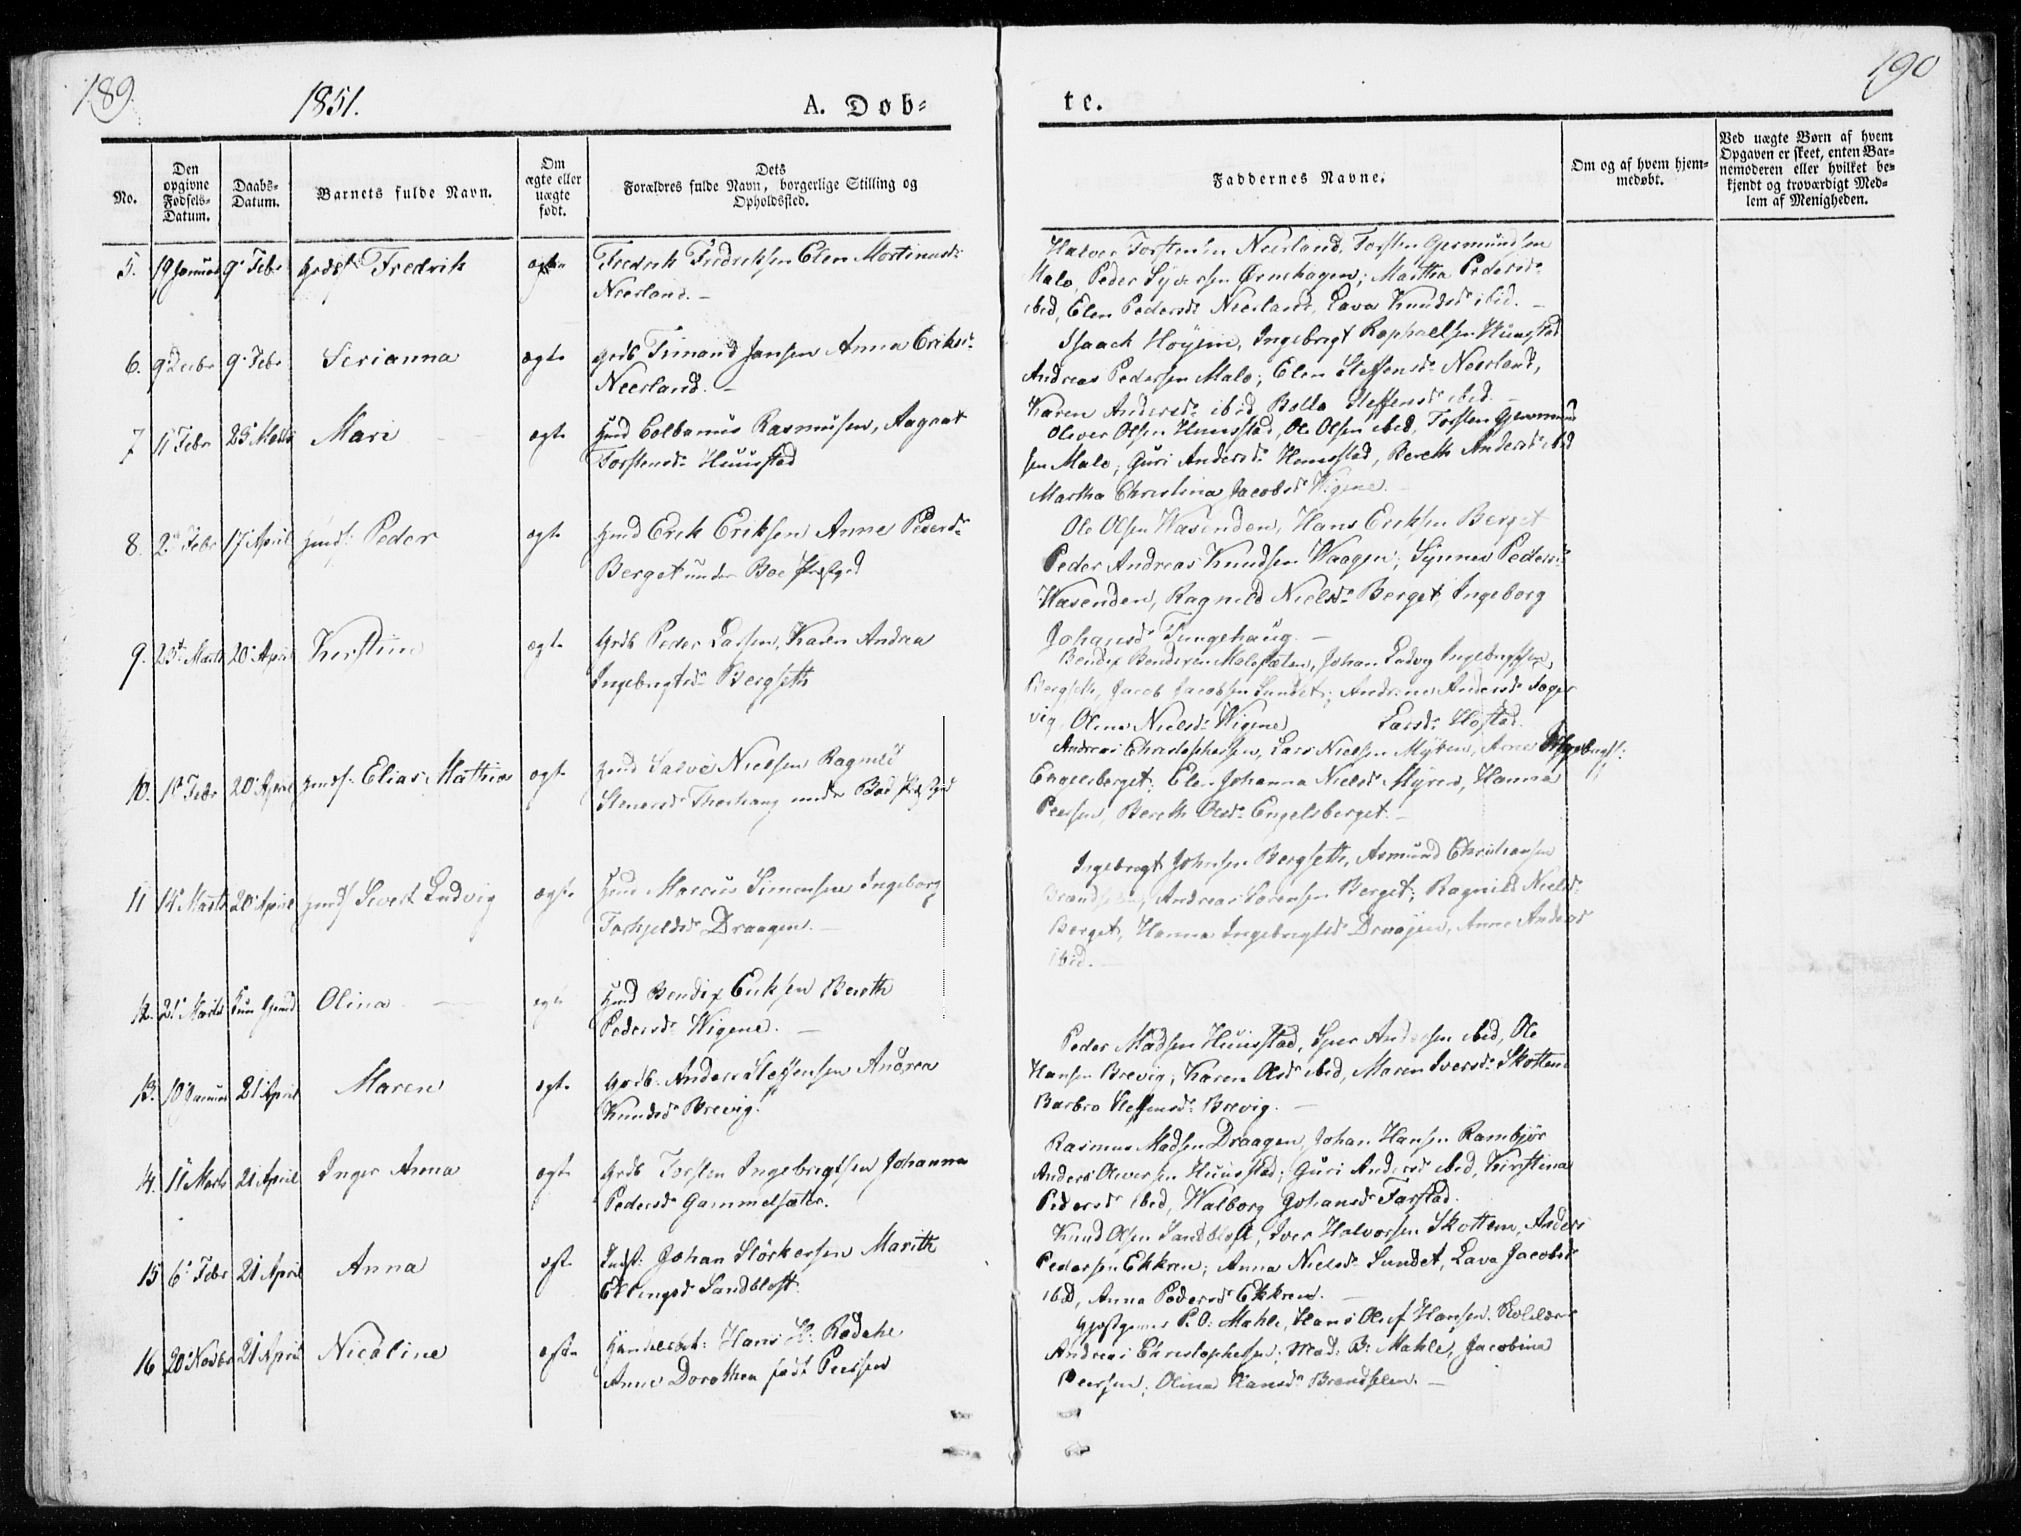 189.
1851.
A. Døb=
te.
190
No.
Den opgivne Fødsels-Datum.
Daabs-Datum.
Barnets fulde Navn.
Om ægte eller uægte født.
Dets Forældres fulde Navn, borgerlige Stilling og Opholdssted.
Faddernes Navne.
Om og af hvem hjem-medøbt.
Ved uægte Børn af hvem Opgaven er skeet, enten Bar-nemoderen eller hvilket be-kjendt og troværdigt Med-lem af Menigheden.
5. 19 Januar 9 Febr Fredrik ægte Fredrik Fredriksen Elen Mortinusd:
Neerland. -
Halvor Torstensen Neerland, Torsten Germundsen
Malo, Peder Syversen Ørnehagen; Martha Pedersd:
ibid, Elen Pedersd: Neerland, Lava Knudsd: ibid. -
6. 9 Decbr 9 Febr Serianna ægte Grdb Simand Jansen Anna Eriksd:
Neerland. -
Isaach Höyem, Ingebrigt Raphaelsen Huustad
Andreas Pedersen Malo; Elen Steffensd: Neerland,
Karen Andersd: ibid, Bolla Steffensd: ibid. -
7 11 Febr 23 Marts Mari ægte Huusmd Colbanus Rasmusen, Aagaat
Torstensd: Huustad
Oliver Olsen Huustad, Ole Olsen ibid, Torsten Germund
sen Malo; Guri Andersd: Huustad, Bereth Andersd: ibid
Martha Christina Jacobsd: Wigene.
8. Febr 17 April Peder ægte Erik Eriksen Anne Pedersd:
Berget under Boe Præstgrd
Ole Olsen Wasenden, Hans Eriksen Berget
Peder Andreas Knudsen Waagen; Synnev Pedersd:
Wasenden, Ragnild Nielsd: Berget, Ingeborg
Johansd: Tungehaug. -
9. 23 Marts 20 April Kirstine ægte Grdb Peder Larsen, Karen Andrea
Ingebrigtsd: Bergseth
Bendix Bendixen Malosæten, Johan Ludvig Ingebrigtsen,
Bergseth, Jacob Jacobsen Sundet; Andrine Andersd:
vig, Oline Nielsd: Wigene, Larsd: Hostad.
10. 1 Febr 20 April Elias Mathias ægte Salve Nielsen Ragnild
Stenersd: Thorhaug under Boe Præstgrd
Andreas Christophersen, Lars Nielsen Myren, Arne Ingebrigts:
Engelsberget; Elen Johanna Nielsd: Myren, Hanna
Peersen, Bereth Olsd: Engelsberget. -
11 14 Marts 20 April Sivert Ludvig ægte Marcus Simensen Ingeborg
Torkjeldsd: Draagen. -
Ingebrigt Johnsen Bergseth, Asmund Christiansen
Andreas Sørensen Berget; Ragnild Nielsd:
Berget, Hanna Ingebrigtsd: Draagen, Anne Andersd
ibid. -
12. 21 Marts Olina Bendix Eriksen Bereth
Pedersd: Wigene. -
13. 10 Januar 21 April Maren ægte Grdb. Anders Steffensen Andrea
Knudsd: Brevig.
Peder Madsen Huustad, Iver Andersen ibid, Ole
Hansen Brevig; Karen Olsd: ibid, Maren Iversd: Skottem
Barbro Steffensd: Brevig. -
14. 11 Marts 21 April Inger Anna ægte Grdb Torsten Ingebrigtsen Johanna
Pedersd: Gammelsæter.
Rasmus Madsen Draagen, Johan Hansen Rambjør
Anders Oliversen Huustad; Guri Andersd: ibid, Kirstina
Pedersd: ibid, Walborg Johansd: Farstad.
15 6 Febr 21 April Anna ægte Indst: Johan Störkersen Marith
Erlingsd: Sandblost.
Knud Olsen Sandblost, Iver Halvorsen Skottem, Anders
Pedersen Ekkren; Anna Nielsd: Sundet, Lava Jacobsd:
ibid, Anna Pedersd: Ekkren. -
16 20 Novbr 21 April Nicoline ægte Handelsbet: Hans H: Rødahl
Anne Dorothea født Peersen
Gjestgever P. O: Mahle, Hans Oluf Hansen. Skolelærer
Andreas Christophersen; Mad: B: Mahle, Jacobina
Peersen; Olina Hansd: Brandsløen. -